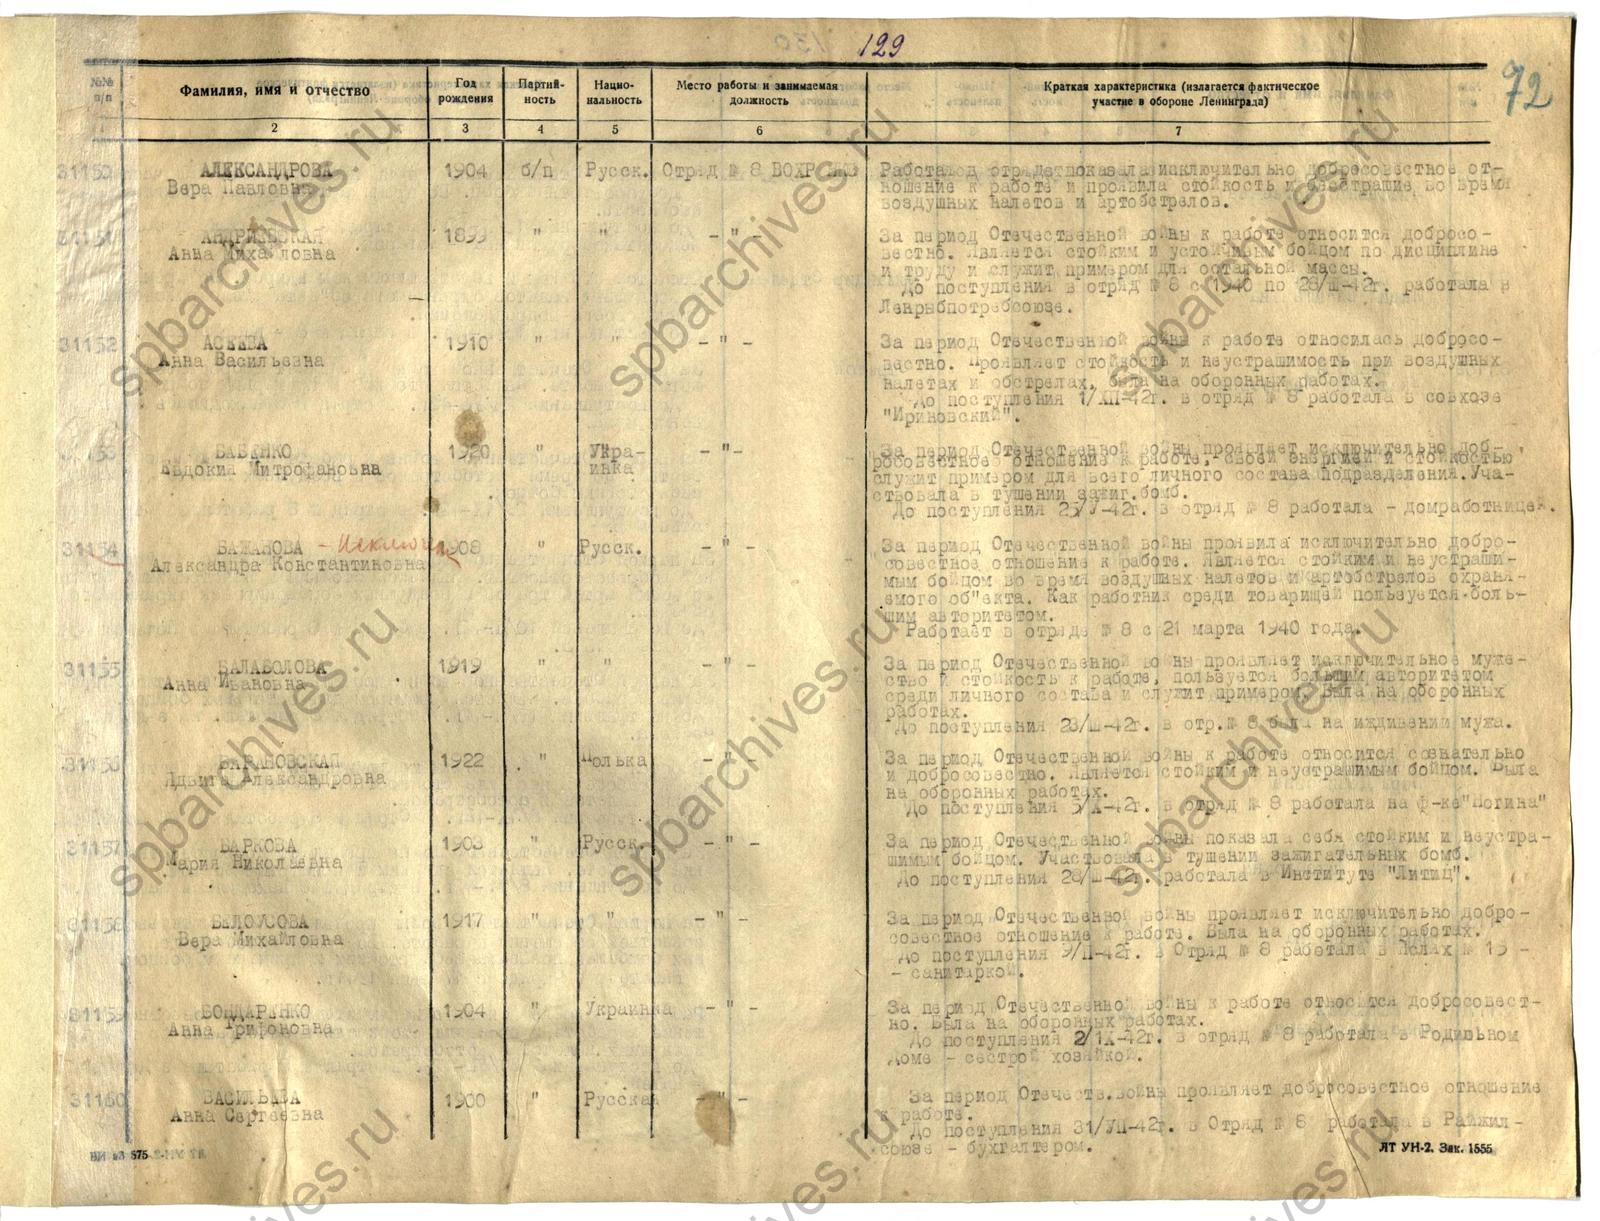 129
72
№№ п/п
Фамилия, имя и отчество
Год рождения
Партий-
ность
Нацио-
нальность
Место работы и занимаемая
должность
Краткая характеристика (излагается фактическое
участие в обороне Ленинграда)
2 3 4 5 6 7
31150 АЛЕКСАНДРОВА 1904 б/п Русск. Отряд № 8 ВОХР
Вера Павловна
Работая в отряде показала исключительно добросовестное от-
ношение к работе и проявила стойкость и бесстрашие во время
воздушных налетов и артобстрелов.
31151 АНДРИЕВСКАЯ 1899 " " - " -
Анна Михайловна
За период Отечественной войны к работе относится добросо-
вестно. Является стойким и устойчивым бойцом по дисциплине
и труду и служит примером для остальной массы.
До поступления в отряд № 8 с 1940 по 28/Ш-42г. работала в
Ленрыбпотребсоюзе.
31152 АСЕЕВА 1910 " " - " -
Анна Васильевна
За период Отечественной войны к работе относилась добросо-
вестно. Проявляет стойкость и неустрашимость при воздушных
налетах и обстрелах, была на оборонных работах.
До поступления 1/ХП-42г. в отряд № 8 работала в совхозе
"Ириновский".
31153 БАБЕНКО 1920 " Укра- - "-
Евдокия Митрофановна инка
За период Отечественной войны проявляет исключительно доб-
росовестное отношение к работе, своей энергией и стойкостью
служит примером для всего личного состава подразделения. Уча-
ствовала в тушении зажиг.бомб.
До поступления 25/У-42г. в отряд № 8 работала - домработницей.
31154 БАЖАНОВА - Исключ. 1908 " Русск. - " -
Александра Константиновна
За период Отечественной войны проявила исключительно добро-
совестное отношение к работе. Является стойким и неустраши-
мым бойцом во время воздушных налетов и артобстрелов охраня-
емого об"екта. Как работник среди товарищей пользуется боль-
шим авторитетом.
Работает в отряде № 8 с 21 марта 1940 года.
31155 БАЛАБОЛОВА 1919 " " - " -
Анна Ивановна
За период Отечественной войны проявляет исключительное муже-
ство и стойкость к работе, пользуется большим авторитетом
среди личного состава и служит примером. Была на оборонных
работах.
До поступления 23/Ш-42г. в отр.№ 8 была на иждивении мужа.
31156 БАРАНОВСКАЯ 1922 " Полька - " -
Ядвига Александровна
За период Отечественной войны к работе относится сознательно
и добросовестно. Является стойким и неустрашимым бойцом. Была
на оборонных работах.
До поступления 5/Х-42г. в отряд № 8 работала на ф-ке"Ногина"
31157 БАРКОВА 1903 " Русск. - " -
Мария Николаевна
За период Отечественной войны показала себя стойким и неустра-
шимым бойцом. Участвовала в тушении зажигательных бомб.
До поступления 28/Ш-42г. работала в Институте "Литиц".
31158 БЕЛОУСОВА 1917 " " - " -
Вера Михайловна
За период Отечественной войны проявляет исключительно добро-
совестное отношение к работе. Была на оборонных работах.
До поступления 9/П-42г. в Отряд № 8 работала в Яслях № 15 -
- санитаркой.
31159 БОНДАРЕНКО 1904 " Украинка - " -
Анна Трифоновна
За период Отечественной войны к работе относится добросовест-
но. Была на оборонных работах.
До поступления 2/1Х-42г. в отряд № 8 работала в Родильном
Доме - сестрой хозяйкой.
31160 ВАСИЛЬЕВА 1900 " Русская - " -
Анна Сергеевна
За период Отечеств.войны проявляет добросовестное отношение
к работе.
До поступления 31/УП-42г. в Отряд № 8 работала в Райжил-
союзе - бухгалтером.
ЛТ УН-2. Зак. 1555
spbarchives.ru